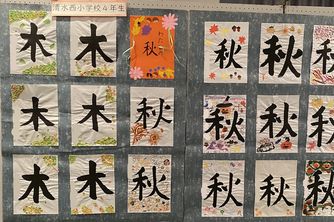 清水西小学校4年生
木
木
秋
秋
秋
秋
木
木
秋
秋
秋
秋
木
木
秋
秋
秋
秋